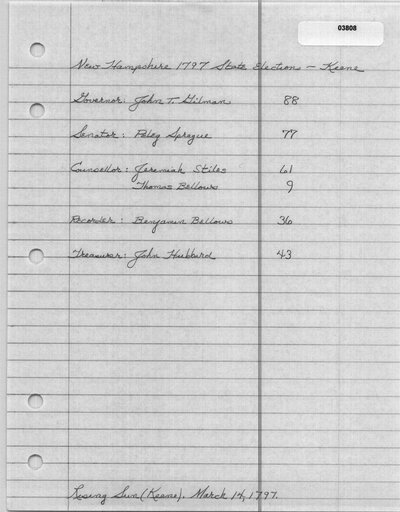 03808
New Hampshire 1797 State Election - Keene
Governor: John T. Gilman 88
Senator: Peleg Sprague 77
Counsellor: Jeremiah Stiles 61
Thomas Bellows 9
Recorder: Benjamin Bellows 36
Treasurer: John Hubbard 43
Rising Sun (Keene). March 14, 1797.